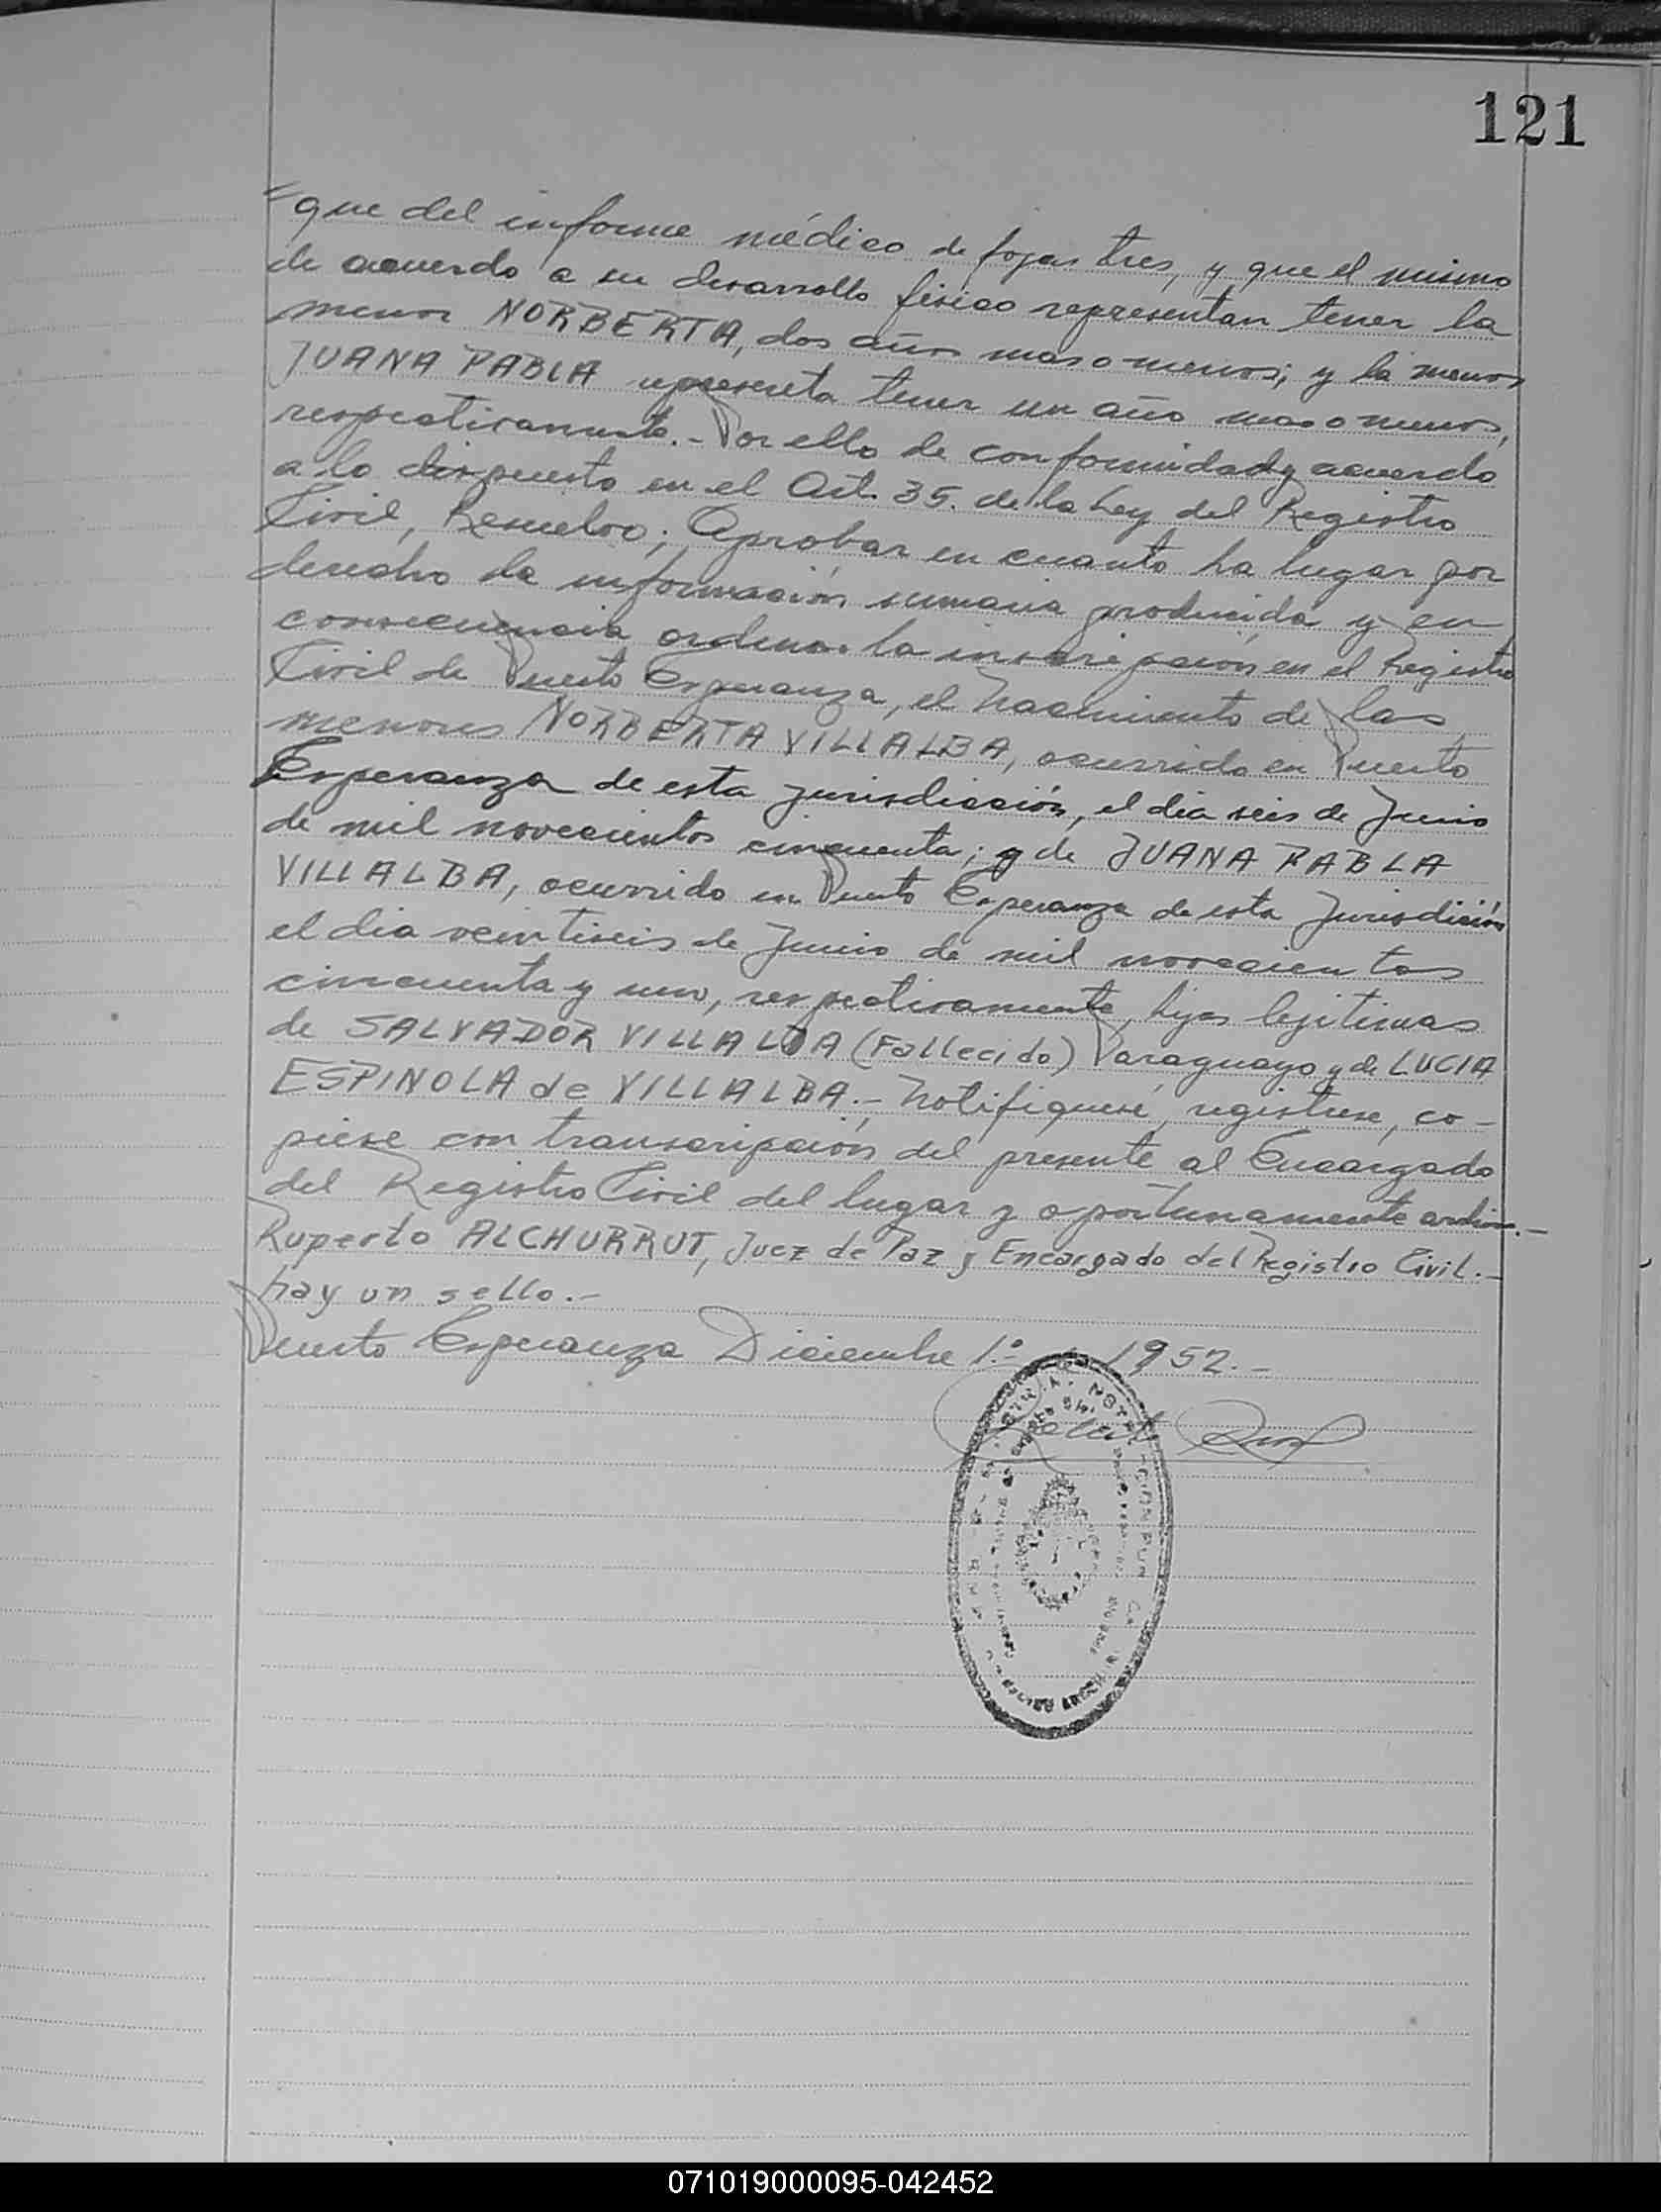 121
que del informe médico de fojas tres, y que el mismo
de acuerdo a su desarrollo fisico representan tener la
menor NORBERTA, dos años mas o menos; y la menor
JUANA PABLA representa tener un año mas o menos,
respectivamente.- Por ello de conformidad y acuerdo
a lo dispuesto en el Art. 35. de la Ley del Registro
Civil, Resuelvo; Aprobar en cuanto ha lugar por
derecho la información sumaria producida y en
consecuencia ordenar la inscripción en el Registro
Civil de Puerto Esperanza, el Nacimiento de las
menores NORBERTA VILLALBA, ocurrido en Puerto
Esperanza de esta jurisdicción, el dia seis de Junio
de mil novecientos cincuenta; y de JUANA PABLA
VILLALBA, ocurrido en Puerto Esperanza de esta Jurisdición
el dia veintiseis de Junio de mil novecientos
cincuenta y uno, respectivamente, hijas lejitimas
de SALVADOR VILLALBA (Fallecido) Paraguayo y de LUCIA
ESPINOLA de VILLALBA.- Notifiquese, registrese, co-
piese con transcripción del presente al Encargado
del Registro Civil del lugar y oportunamente
Ruperto ALCHURRUT, Juez de Paz y Encargado del Registro Civil.-
hay un sello.-
Puerto Esperanza Diciembre 1.º de 1952.-
071019000095-042452